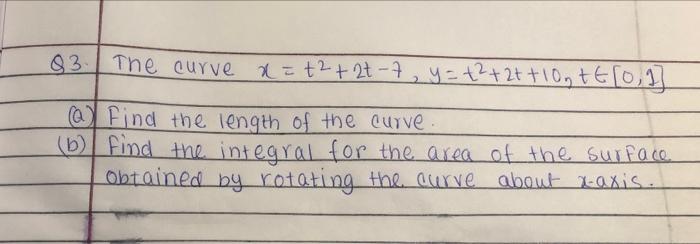 Q3. The curve x = t²+2t-7, y = t²+2t+10, t∈[0,1]
(a) Find the length of the curve.
(b) Find the integral for the area of the surface
obtained by rotating the curve about x-axis.